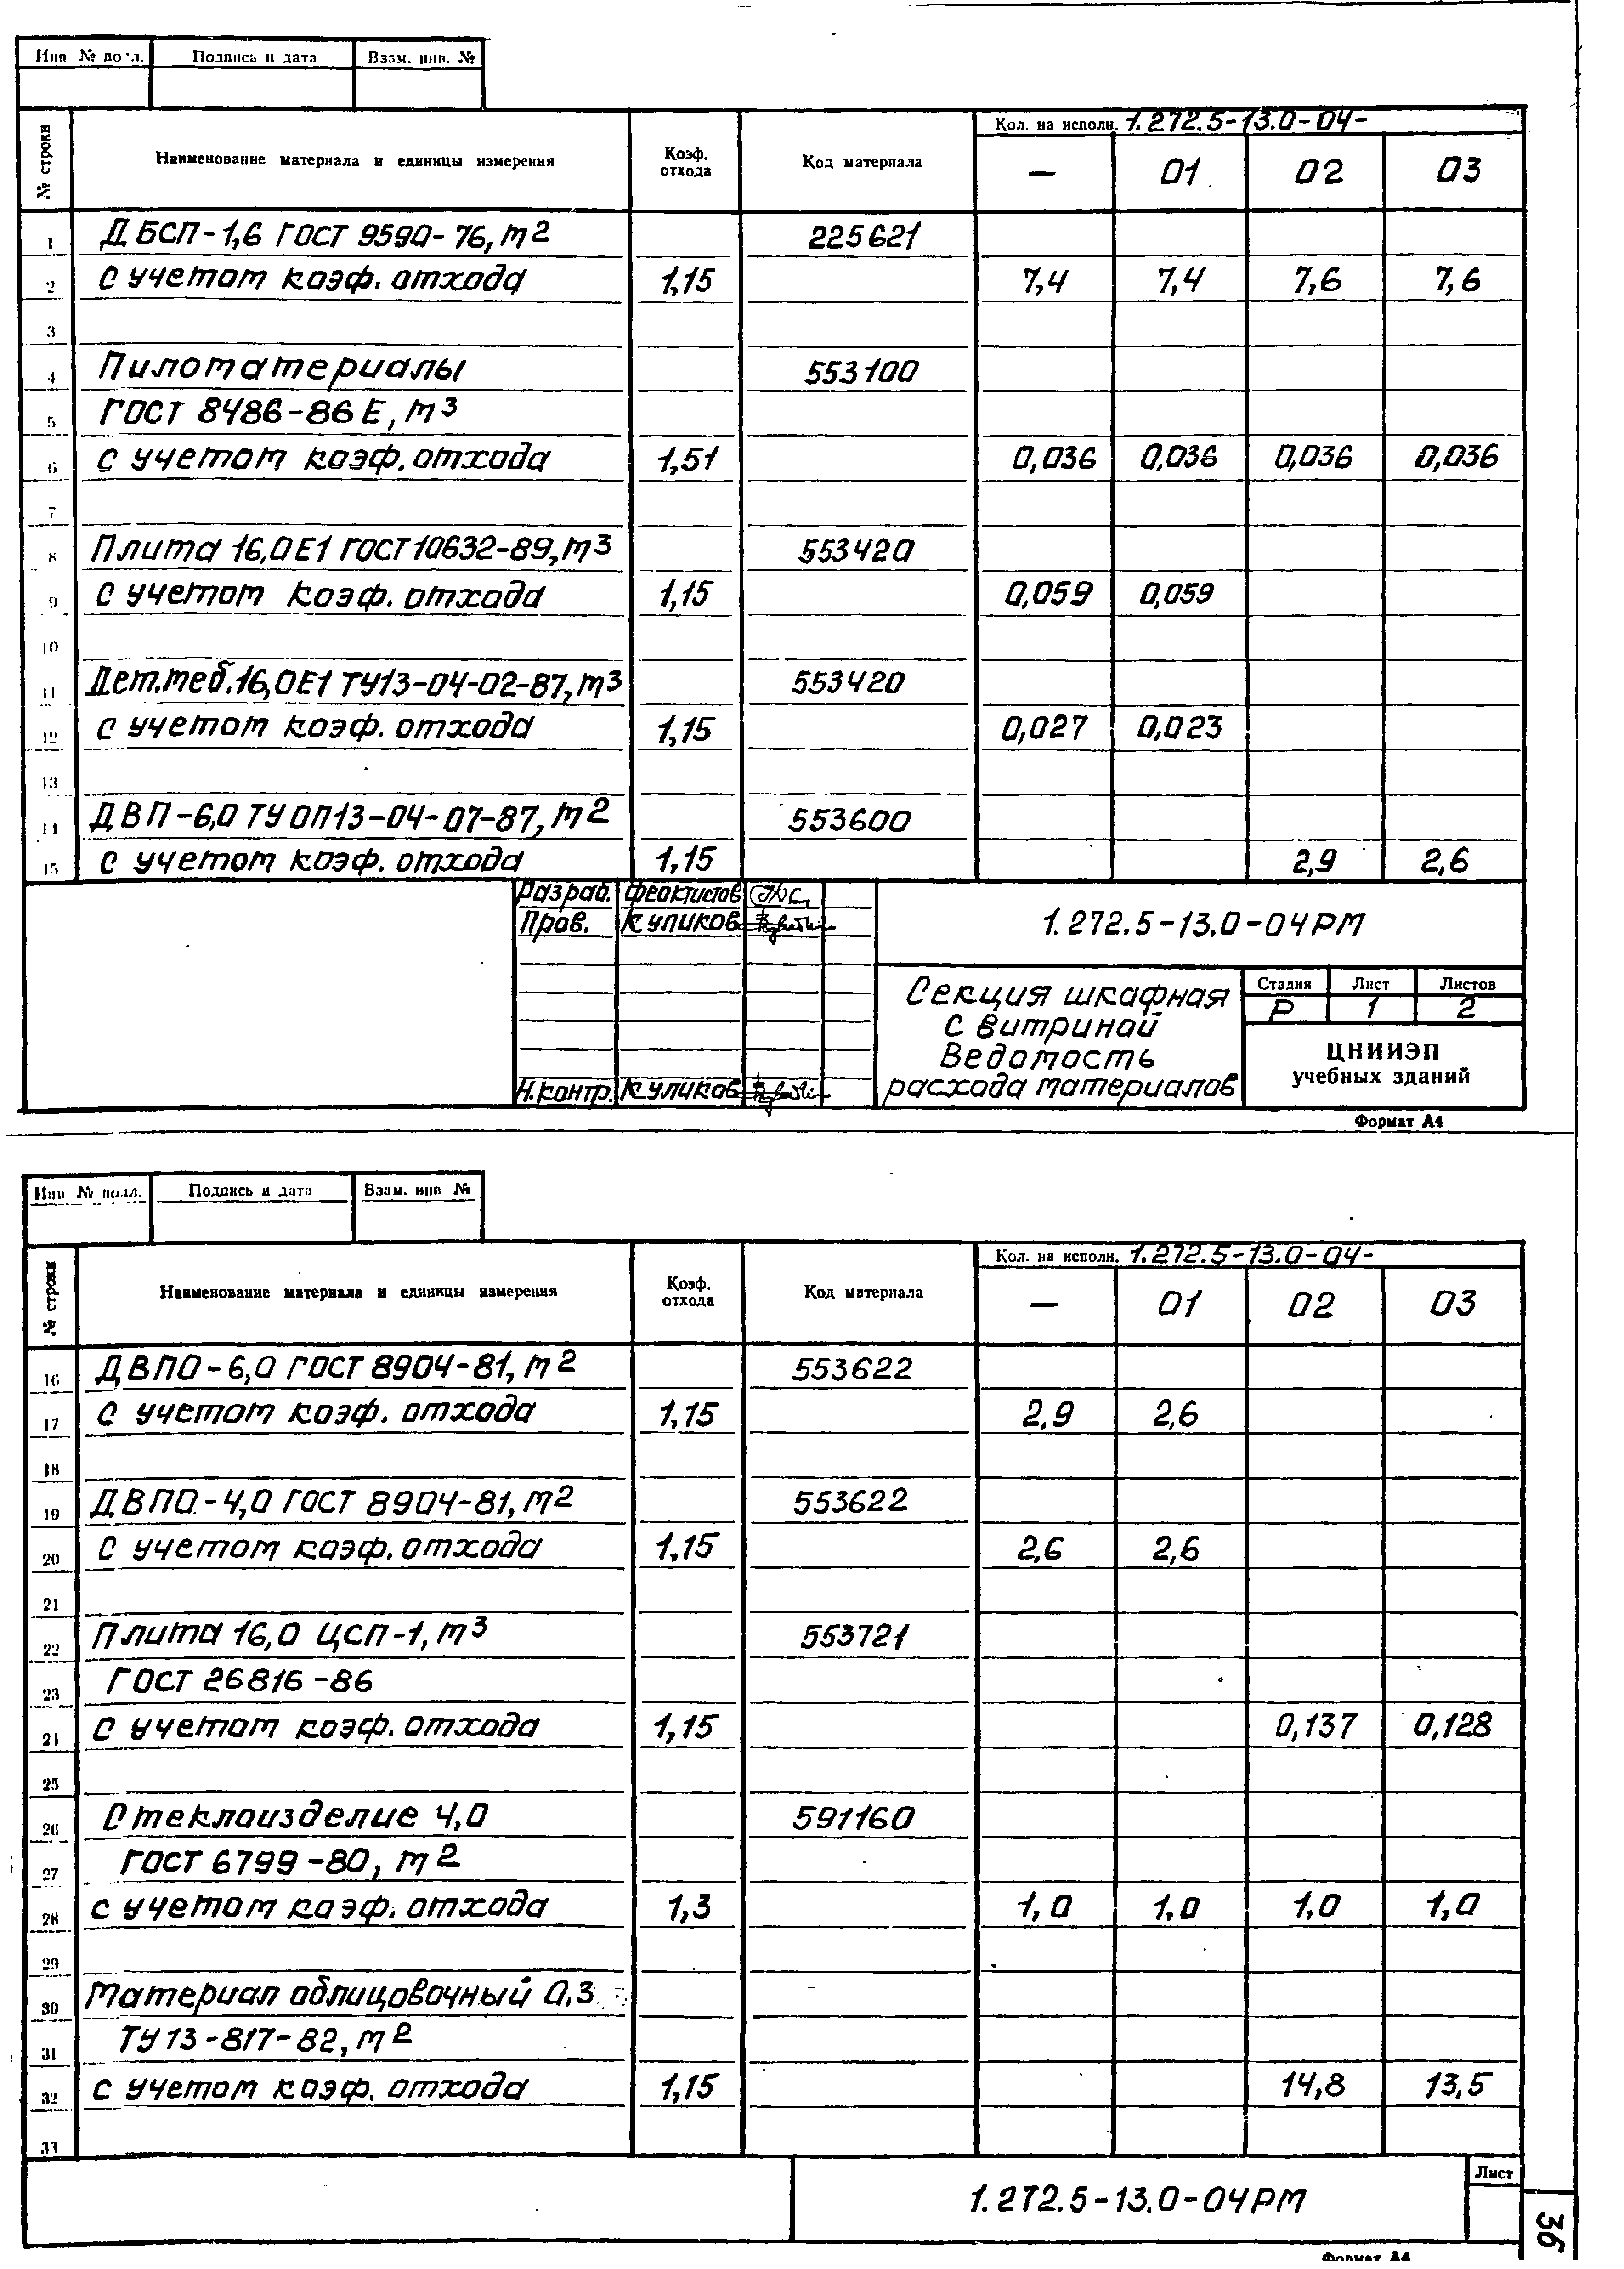 Инв № подл. Подпись и дата Взам. инв. №
№ строки Наименование материала и единицы измерения Коэф. отхода Код материала Кол. на исполн. 1.272.5-13.0-04-
— 01 02 03
1 ДБСП-1,6 ГОСТ 9590-76, м2 225621
2 с учетом коэф. отхода 1,15 7,4 7,4 7,6 7,6
3
4 Пиломатериалы 553100
5 ГОСТ 8486-86 Е, м3
6 с учетом коэф. отхода 1,51 0,036 0,036 0,036 0,036
7
8 Плита 16,0 Е1 ГОСТ 10632-89, м3 553420
9 с учетом коэф. отхода 1,15 0,059 0,059
10
11 Дет.меб. 16,0Е1 ТУ13-04-02-87, м3 553420
12 с учетом коэф. отхода 1,15 0,027 0,023
13
14 ДВП-6,0 ТУ ОП13-04-07-87, м2 553600
15 с учетом коэф. отхода 1,15 2,9 2,6
Разраб. Феоктистов
Пров. Куликов
Н.контр. Куликов
1.272.5-13.0-04РМ
Секция шкафная
с витриной
Ведомость
расхода материалов
Стадия Лист Листов
Р 1 2
ЦНИИЭП
учебных зданий
Формат А4
Инв № подл. Подпись и дата Взам. инв №
№ строки Наименование материала и единицы измерения Коэф. отхода Код материала Кол. на исполн. 1.272.5-13.0-04-
— 01 02 03
16 ДВПО-6,0 ГОСТ 8904-81, м2 553622
17 с учетом коэф. отхода 1,15 2,9 2,6
18
19 ДВПО-4,0 ГОСТ 8904-81, м2 553622
20 с учетом коэф. отхода 1,15 2,6 2,6
21
22 Плита 16,0 ЦСП-1, м3 553721
23 ГОСТ 26816-86
24 с учетом коэф. отхода 1,15 0,137 0,128
25
26 Стеклоизделие 4,0 591160
27 ГОСТ 6799-80, м2
28 с учетом коэф. отхода 1,3 1,0 1,0 1,0 1,0
29
30 Материал облицовочный 0,3
31 ТУ 13-817-82, м2
32 с учетом коэф. отхода 1,15 14,8 13,5
33
1.272.5-13.0-04РМ
Лист
Формат А4
36